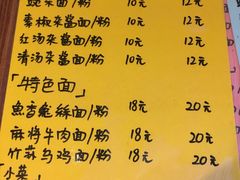 豌杂面/粉 10元 12元
青椒杂酱面/粉 10元 12元
红汤杂酱面/粉 10元 12元
清汤杂酱面/粉 10元 12元
「特色面」
鱼香兔绒面/粉 18元 20元
麻辣牛肉面/粉 18元 20元
竹荪乌鸡面/粉 18元 20元
「小菜」